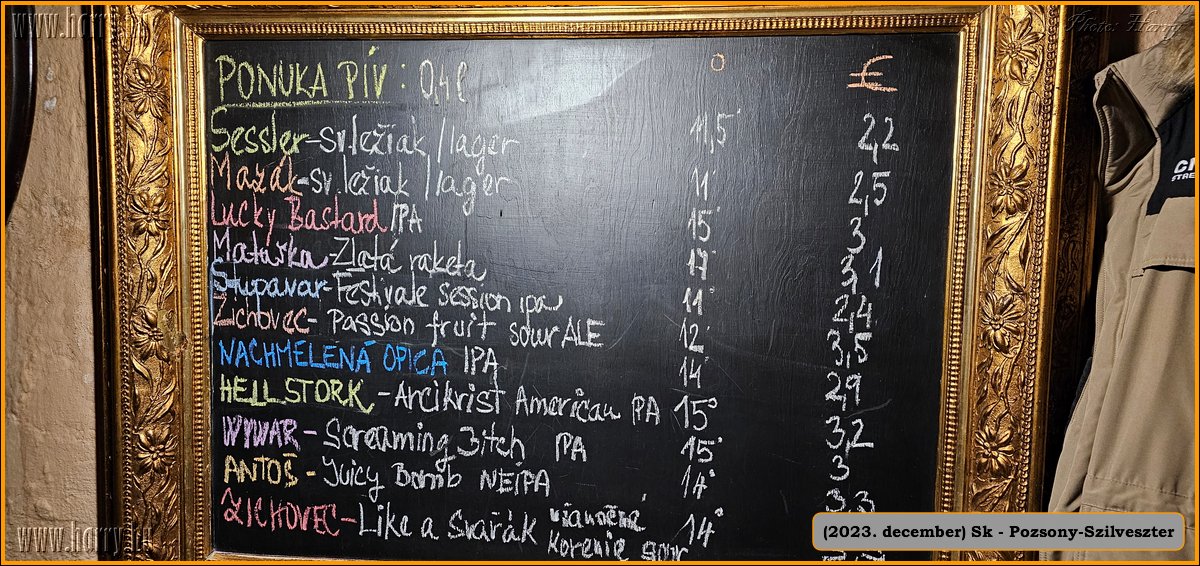 www.harry.hu
Photo: Harry
PONUKA PÍV : 0,4 l ° €
Sessler-sv.ležiak / lager 11,5° 2,2
Mazák-sv.ležiak / lager 11° 2,5
Lucky Bastard IPA 15° 3
Matuška-Zlatá raketa 17° 3,1
Stupavar-Festivale session ipa 11° 2,4
Zichovec- Passion fruit sour ALE 12° 3,5
NACHMELENÁ OPICA IPA 14° 2,9
HELLSTORK -Ancikrist American IPA 15° 3,2
WYWAR - Screaming Bitch IPA 15° 3
ANTOŠ - Juicy Bomb NEIPA 14° 3,3
ZICHOVEC-Like a Svařák 14°
korenie sour
www.harry.hu
(2023. december) Sk - Pozsony-Szilveszter